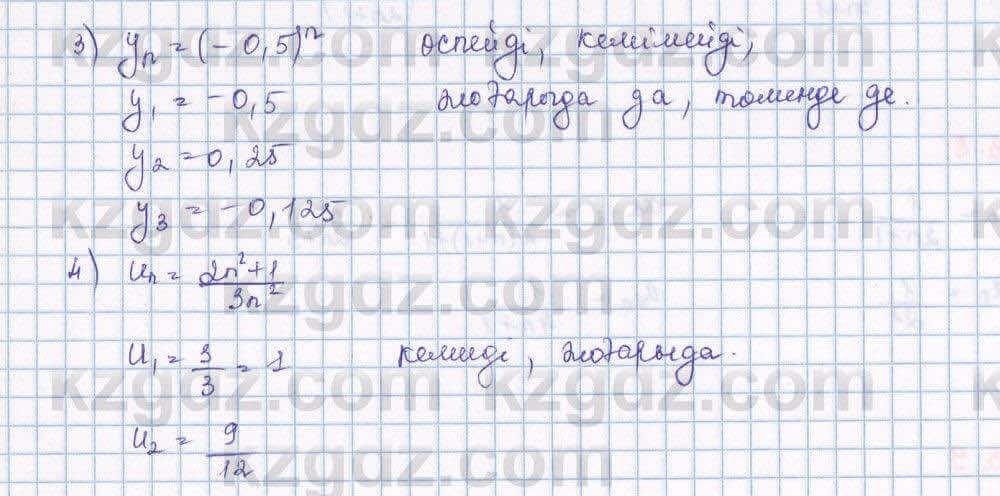 3) yₙ = (-0,5)ⁿ өспейді, кемімейді,
y₁ = -0,5 жоғарыда да, төменде де.
y₂ = 0,25
y₃ = -0,125
4) uₙ = (2n²+1)/(3n²)
u₁ = 3/3 = 1 кемиді, жоғарыда.
u₂ = 9/12
kzgdz.com